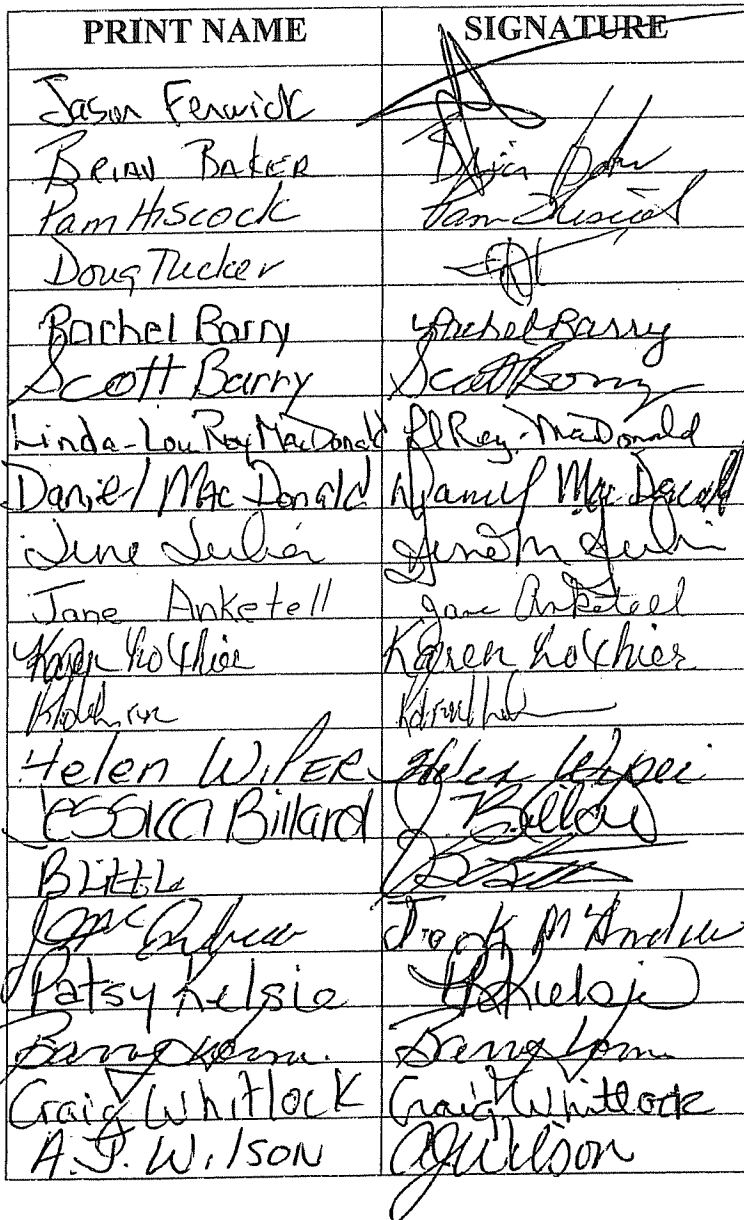 PRINT NAME SIGNATURE
Jason Fenwick
BRIAN BAKER Brian
Pam Hiscock Pam Hiscock
Doug Tucker
Rachel Barry Rachel Barry
Scott Barry Scott Barry
Linda-Lou Roy MacDonald Roy-MacDonald
Daniel MacDonald Daniel MacDonald
June June
Jane Anketell Jane Anketell
Karen Karen
Helen WIPER Helen Wiper
Jessica Billard J. Billard
B Little
Jack McAndrew
Patsy Kelsie P Kelsie
Barry Barry
Craig Whitlock Craig Whitlock
A.J. Wilson AJ Wilson